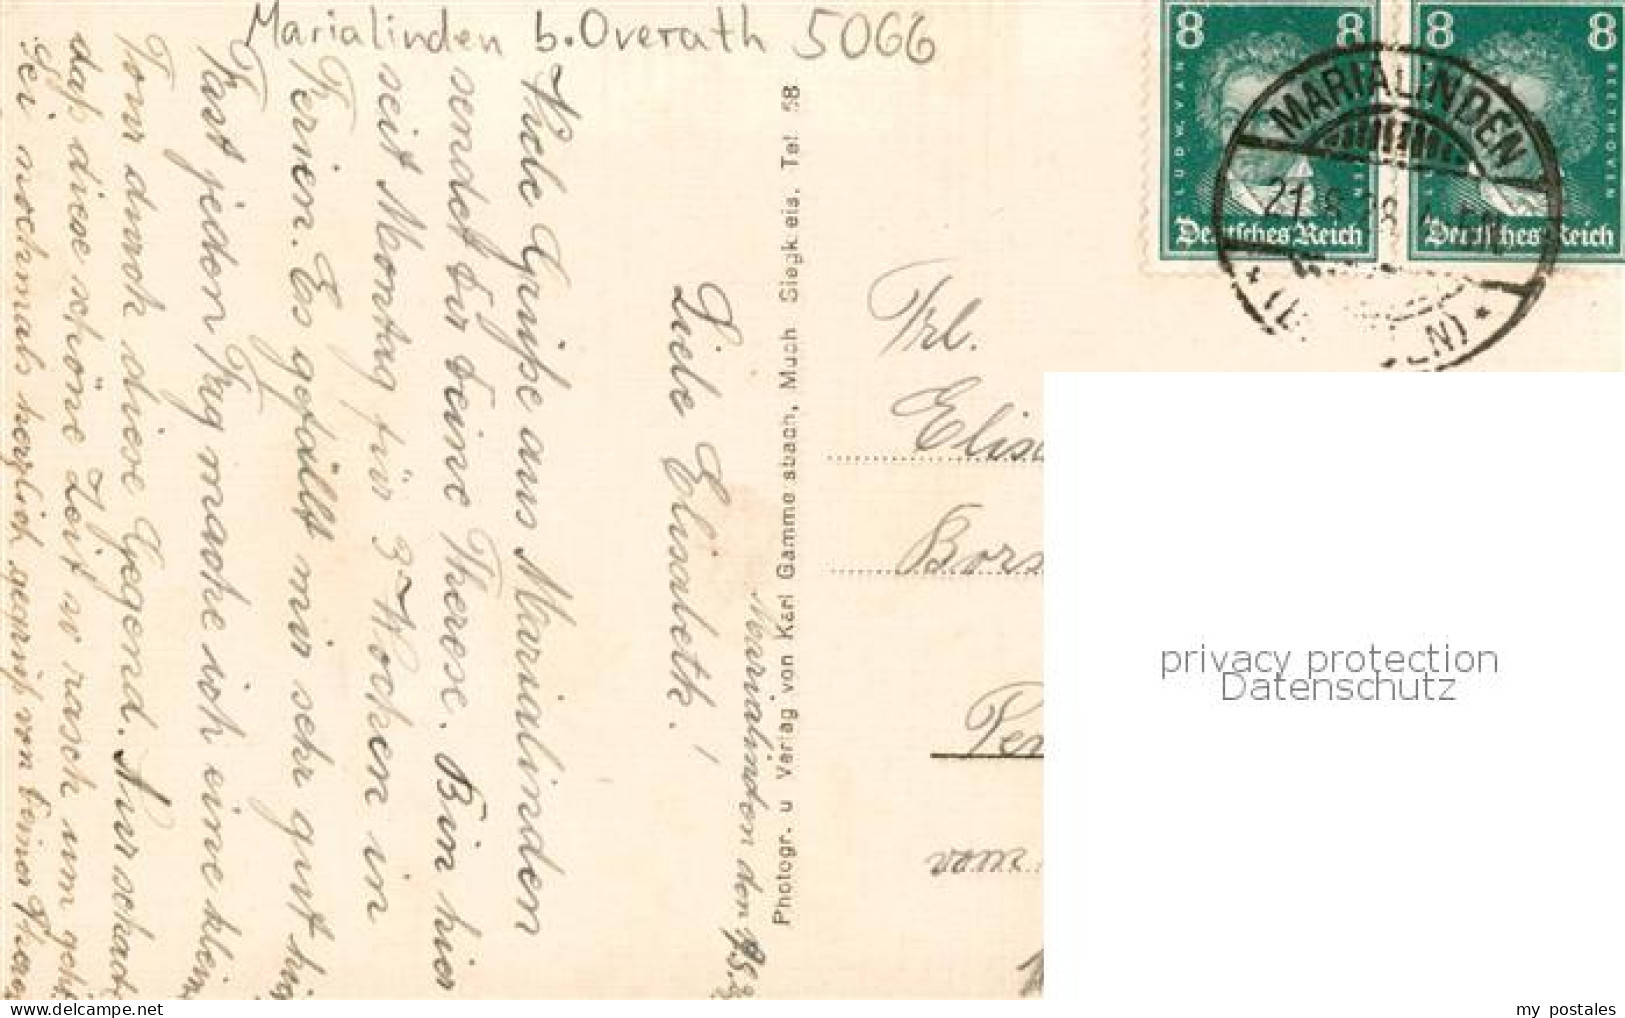 Marialinden b. Overath 5066
8 8
LUDW. VAN
Deutsches Reich
8 8
BEETHOVEN
Deutsches Reich
MARIALINDEN
21. 28
Marialinden den
Liebe Elisabeth!
Viele Grüße aus Marialinden
sendet Dir Deine Therese. Bin hier
seit Montag für 3 Wochen in
Ferien. Es gefällt mir sehr gut hier
Fast jeden Tag mache ich eine klein
Tour durch diese Gegend. Nur schad
daß diese schöne Zeit so rasch um geht
Sei nochmals herzlich gegrüßt von Deiner
Photogr. u Verlag von Karl Gammersbach, Much Siegkreis. Tel 58
Frl.
Elisa
Bors
privacy protection
Datenschutz
delcampe.net
my_postales